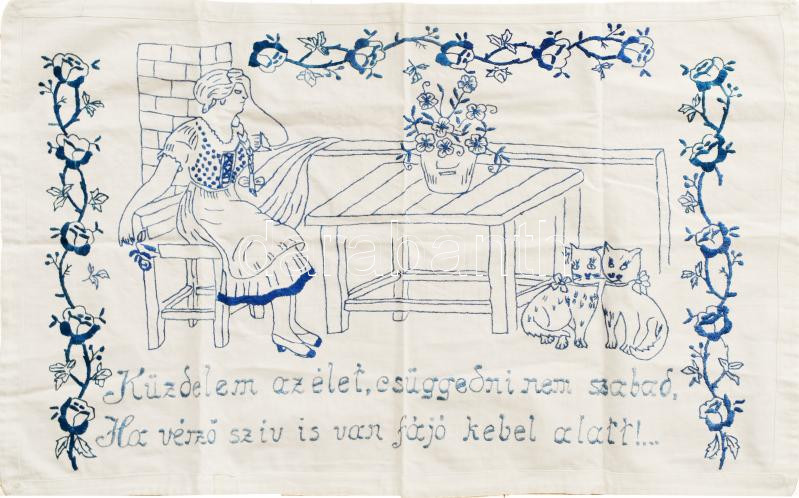 darabanth
Küzdelem azélet, csüggedni nem szabad,
Ha vérző sziv is van fájó kebel alatt!...